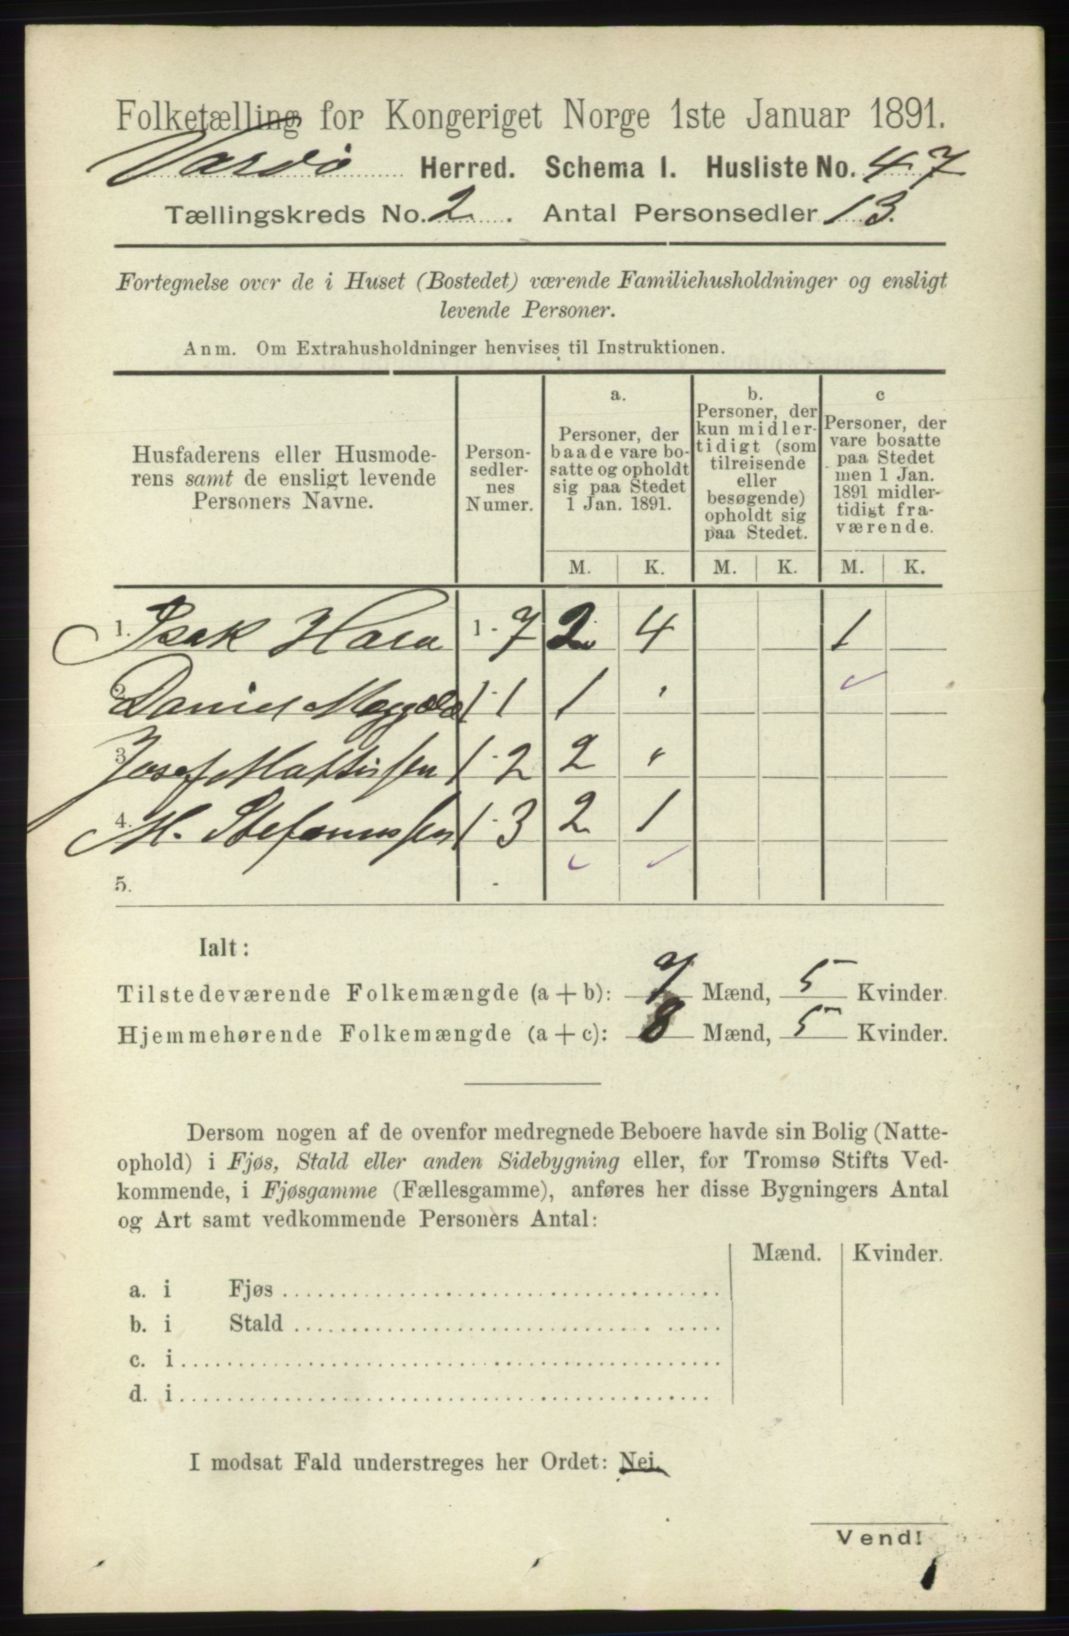 Folketælling for Kongeriget Norge 1ste Januar 1891.
Vardø Herred. Schema I. Husliste No. 47
Tællingskreds No. 2. Antal Personsedler 13.
Fortegnelse over de i Huset (Bostedet) værende Familiehusholdninger og ensligt
levende Personer.
Anm. Om Extrahusholdninger henvises til Instruktionen.
Husfaderens eller Husmode-
rens samt de ensligt levende
Personers Navne.
Person-
sedler-
nes
Numer.
a.
Personer, der
baade vare bo-
satte og opholdt
sig paa Stedet
1 Jan. 1891.
b.
Personer, der
kun midler-
tidigt (som
tilreisende
eller
besøgende)
opholdt sig
paa Stedet.
c
Personer, der
vare bosatte
paa Stedet
men 1 Jan.
1891 midler-
tidigt fra-
værende.
M. K. M. K. M. K.
1. Isak Hara 1-7 2 4 1
2. Daniel 1-1 1 "
3. Josef Mattissen 1-2 2 "
4. M. Stefanussen 1-3 2 1
5. -
Ialt:
Tilstedeværende Folkemængde (a + b): 7 Mænd, 5 Kvinder.
Hjemmehørende Folkemængde (a + c): 8 Mænd, 5 Kvinder.
Dersom nogen af de ovenfor medregnede Beboere havde sin Bolig (Natte-
ophold) i Fjøs, Stald eller anden Sidebygning eller, for Tromsø Stifts Ved-
kommende, i Fjøsgamme (Fællesgamme), anføres her disse Bygningers Antal
og Art samt vedkommende Personers Antal:
Mænd. Kvinder.
a. i Fjøs
b. i Stald
c. i
d. i
I modsat Fald understreges her Ordet: Nei.
Vend!